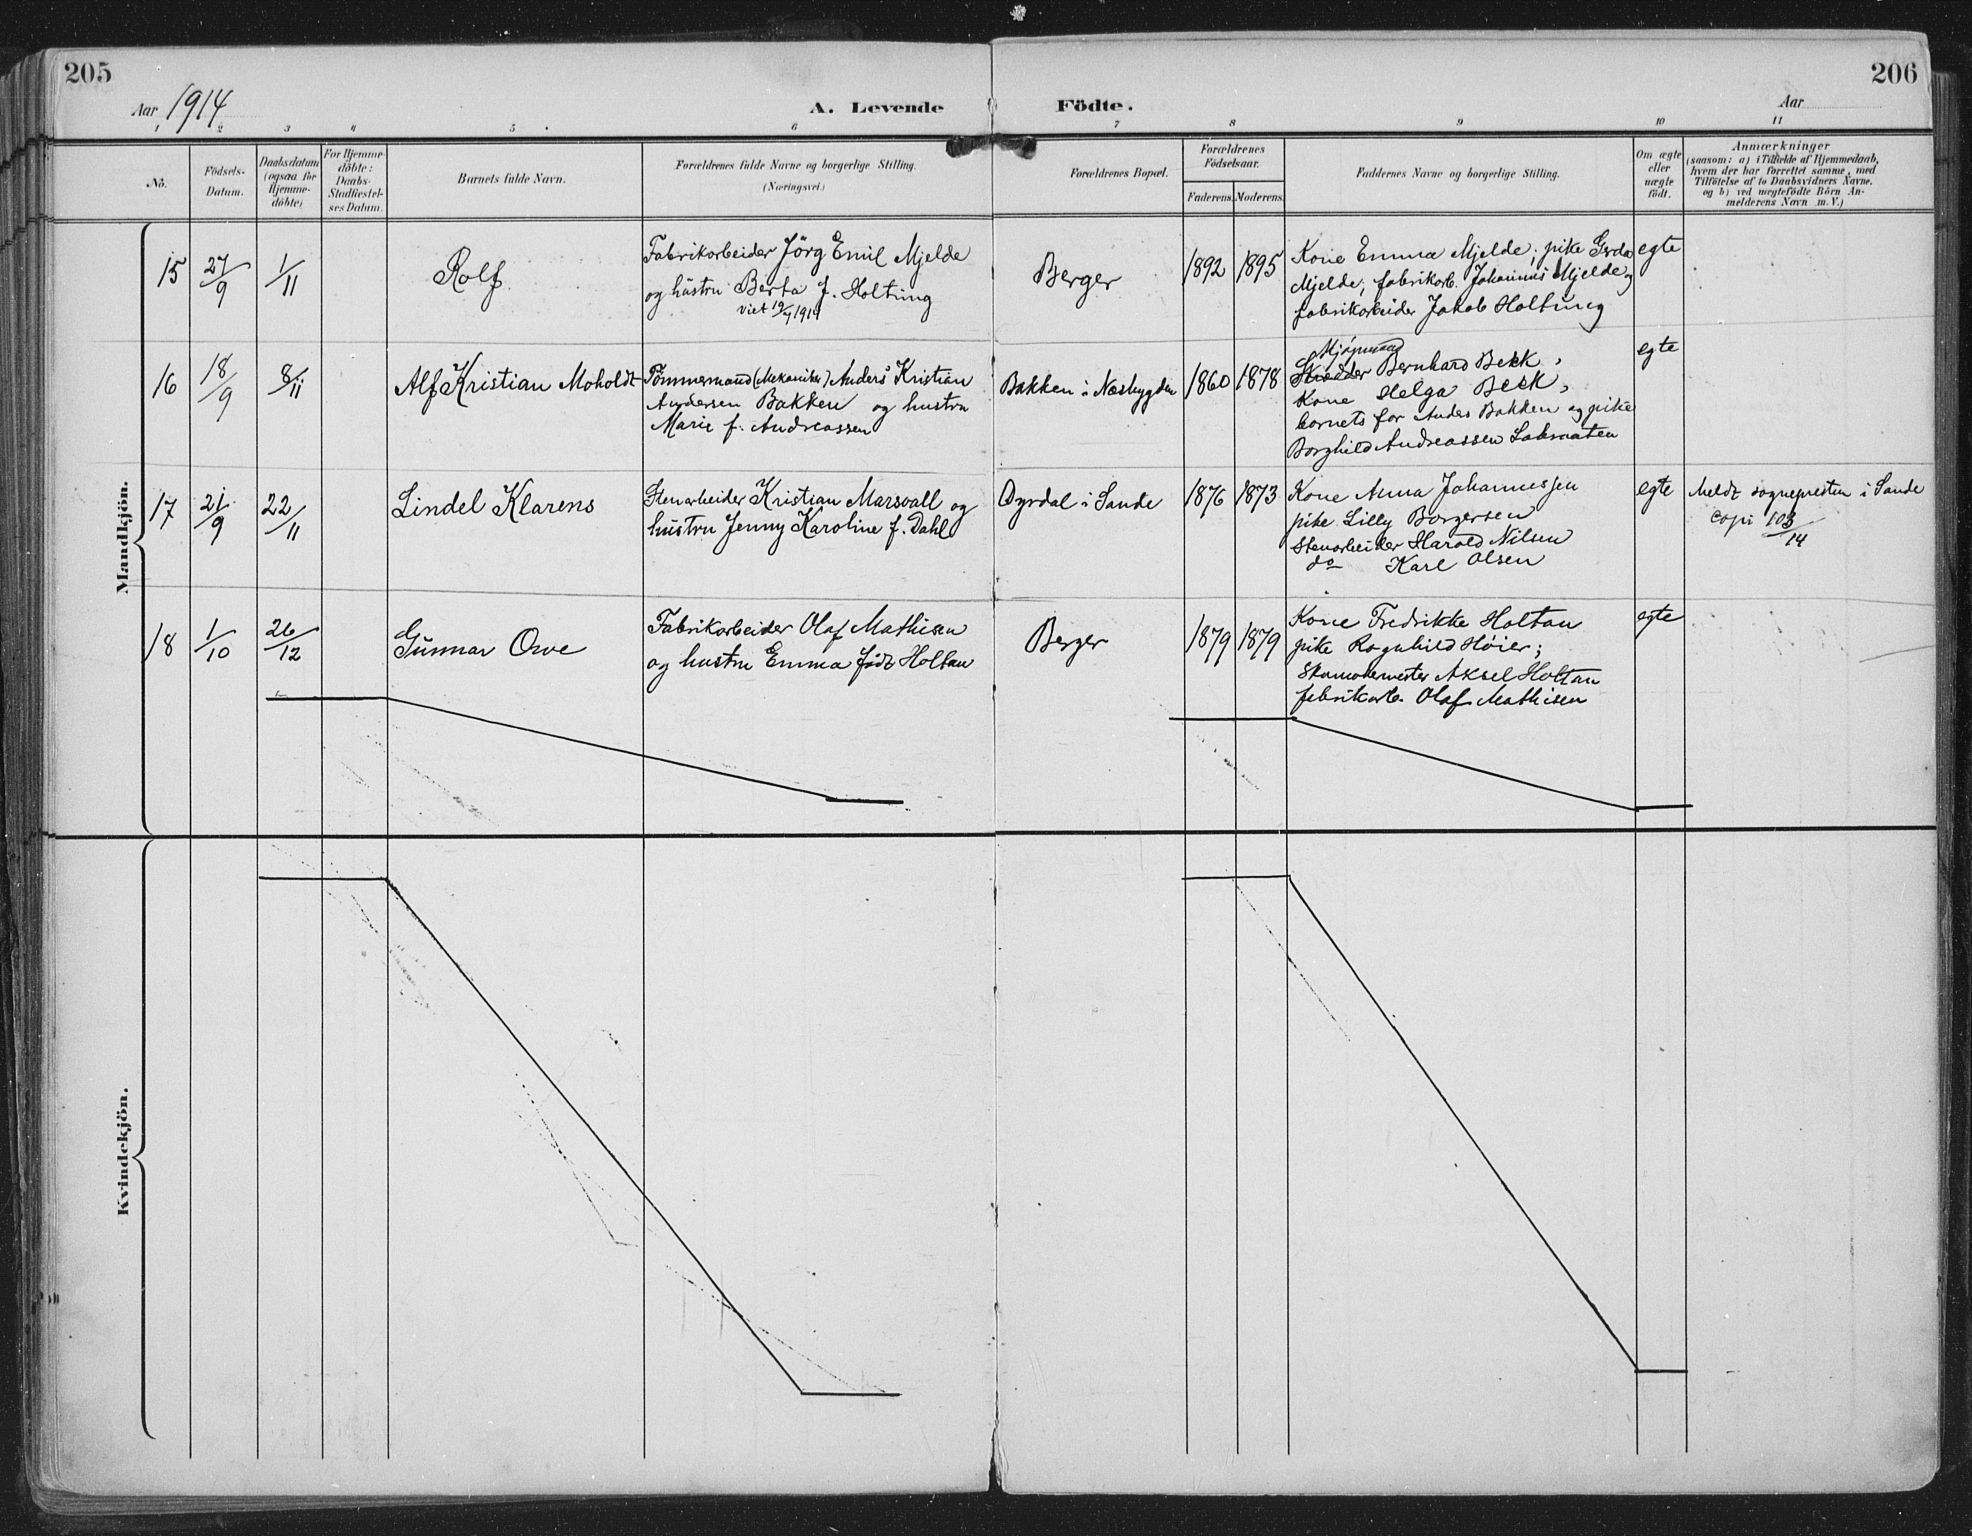 205
206
Aar 1914
A. Levende Födte.
Aar
1 2 3 4 5 6 7 8 9 10 11
No.
Födsels-
Datum.
Daabsdatum
(ogsaa for
Hjemme-
döbte)
For Hjemme-
döbte:
Daabs-
Stadfæstel-
ses Datum.
Barnets fulde Navn.
Forældrenes fulde Navne og borgerlige Stilling.
(Næringsvei.)
Forældrenes Bopæl.
Forældrenes
Födselsaar.
Faderens. Moderens.
Faddernes Navne og borgerlige Stilling.
Om ægte
eller
uægte
födt.
Anmærkninger
(saasom: a) i Tilfælde af Hjemmedaab,
hvem der har forrettet samme, med
Tilföielse af to Daabsvidners Navne.
og b) ved uægtefödte Börn An-
melderens Navn m. V.)
Mandkjön.
15 27/9 1/11 Rolf
Fabrikarbeider Jörg Emil Mjelde
og hustru Berta f. Holtung
viet 1914
Berger
1892 1895
Kone Emma Mjelde; pike Gerda
Mjelde; fabrikarb. Johannes Mjelde og
fabrikarbeider Jakob Holtung
egte
16 18/9 8/11 Alf Kristian Moholdt
Tömmermand (Mekaniker) Anders Kristian
Andersen Bakken og hustru
Marie f. Andreassen
Bakken i Nesbygden
1860 1878
Bernhard Bekk,
Kone Helga Bekk,
barnets far Anders Bakken og pike
Borghild Andreassen
egte
17 21/9 22/11 Lindel Klarens
Stenarbeider Kristian Marsvall og
hustru Jenny Karoline f. Dahl
Dyrdal i Sande
1876 1873
Kone Anna Johannessen
pike Lilly Borgersen
Stenarbeider Harald Nilsen
do Karl Olsen
egte
Meldt sognepresten i Sande
copi 103/14
18 1/10 26/12 Gunnar Owe
Fabrikarbeider Olaf Mathisen
og hustru Emma födt Holtan
Berger
1879 1879
Kone Fredrikke Holtan
pike Ragnhild Høier;
Skomakermester Aksel Holtan
fabrikarb. Olaf Mathisen
egte
Kvindekjön.